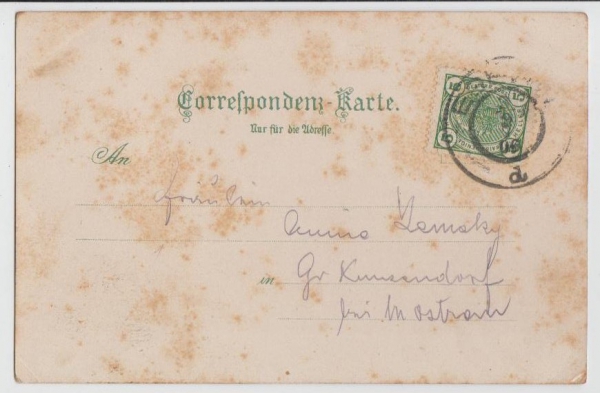 Correspondenz-Karte.
Nur für die Adresse
An
Fräulein
Anna Zemsky
in Gr Kunzendorf
bei M Ostrau